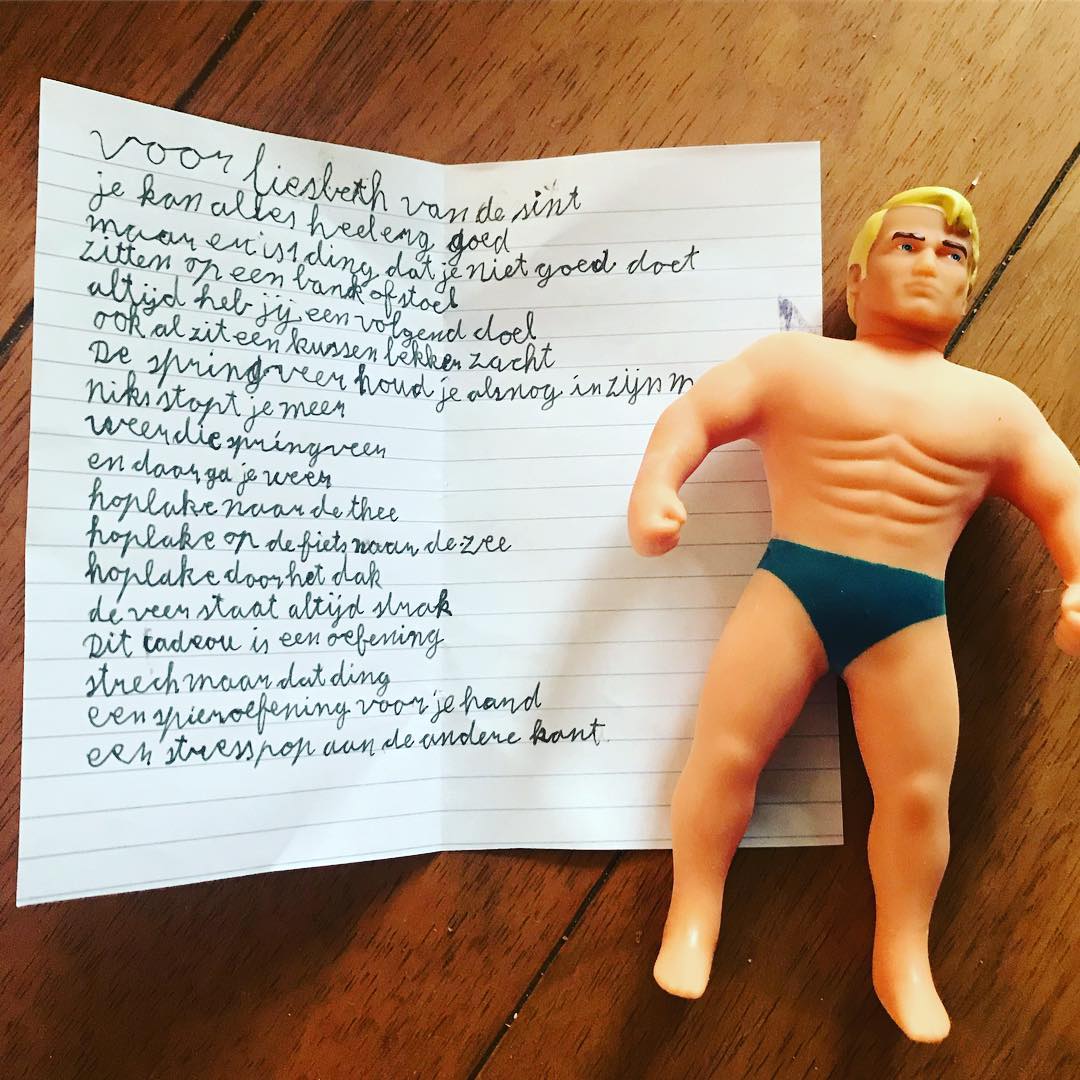 voor liesbeth van de sint
je kan alles heel erg goed
maar er is 1 ding dat je niet goed doet
zitten op een bank of stoel
altijd heb jij een volgend doel
ook al zit een kussen lekker zacht
De springveer houd je alsnog in zijn m
niks stopt je meer
weer die springveer
en daar ga je weer
hoplake naar de thee
hoplake op de fiets naar de zee
hoplake door het dak
de veer staat altijd strak
Dit cadeou is een oefening
strech maar dat ding
een spieroefening voor je hand
een stresspop aan de andere kant